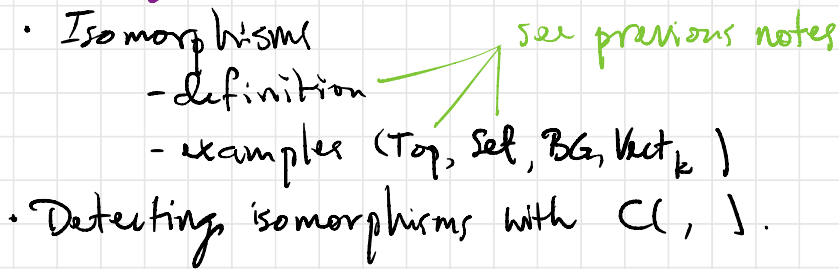 · Isomorphisms see previous notes
- definition
- examples (Top, Set, BG, Vect_k)
· Detecting isomorphisms with C( , ).